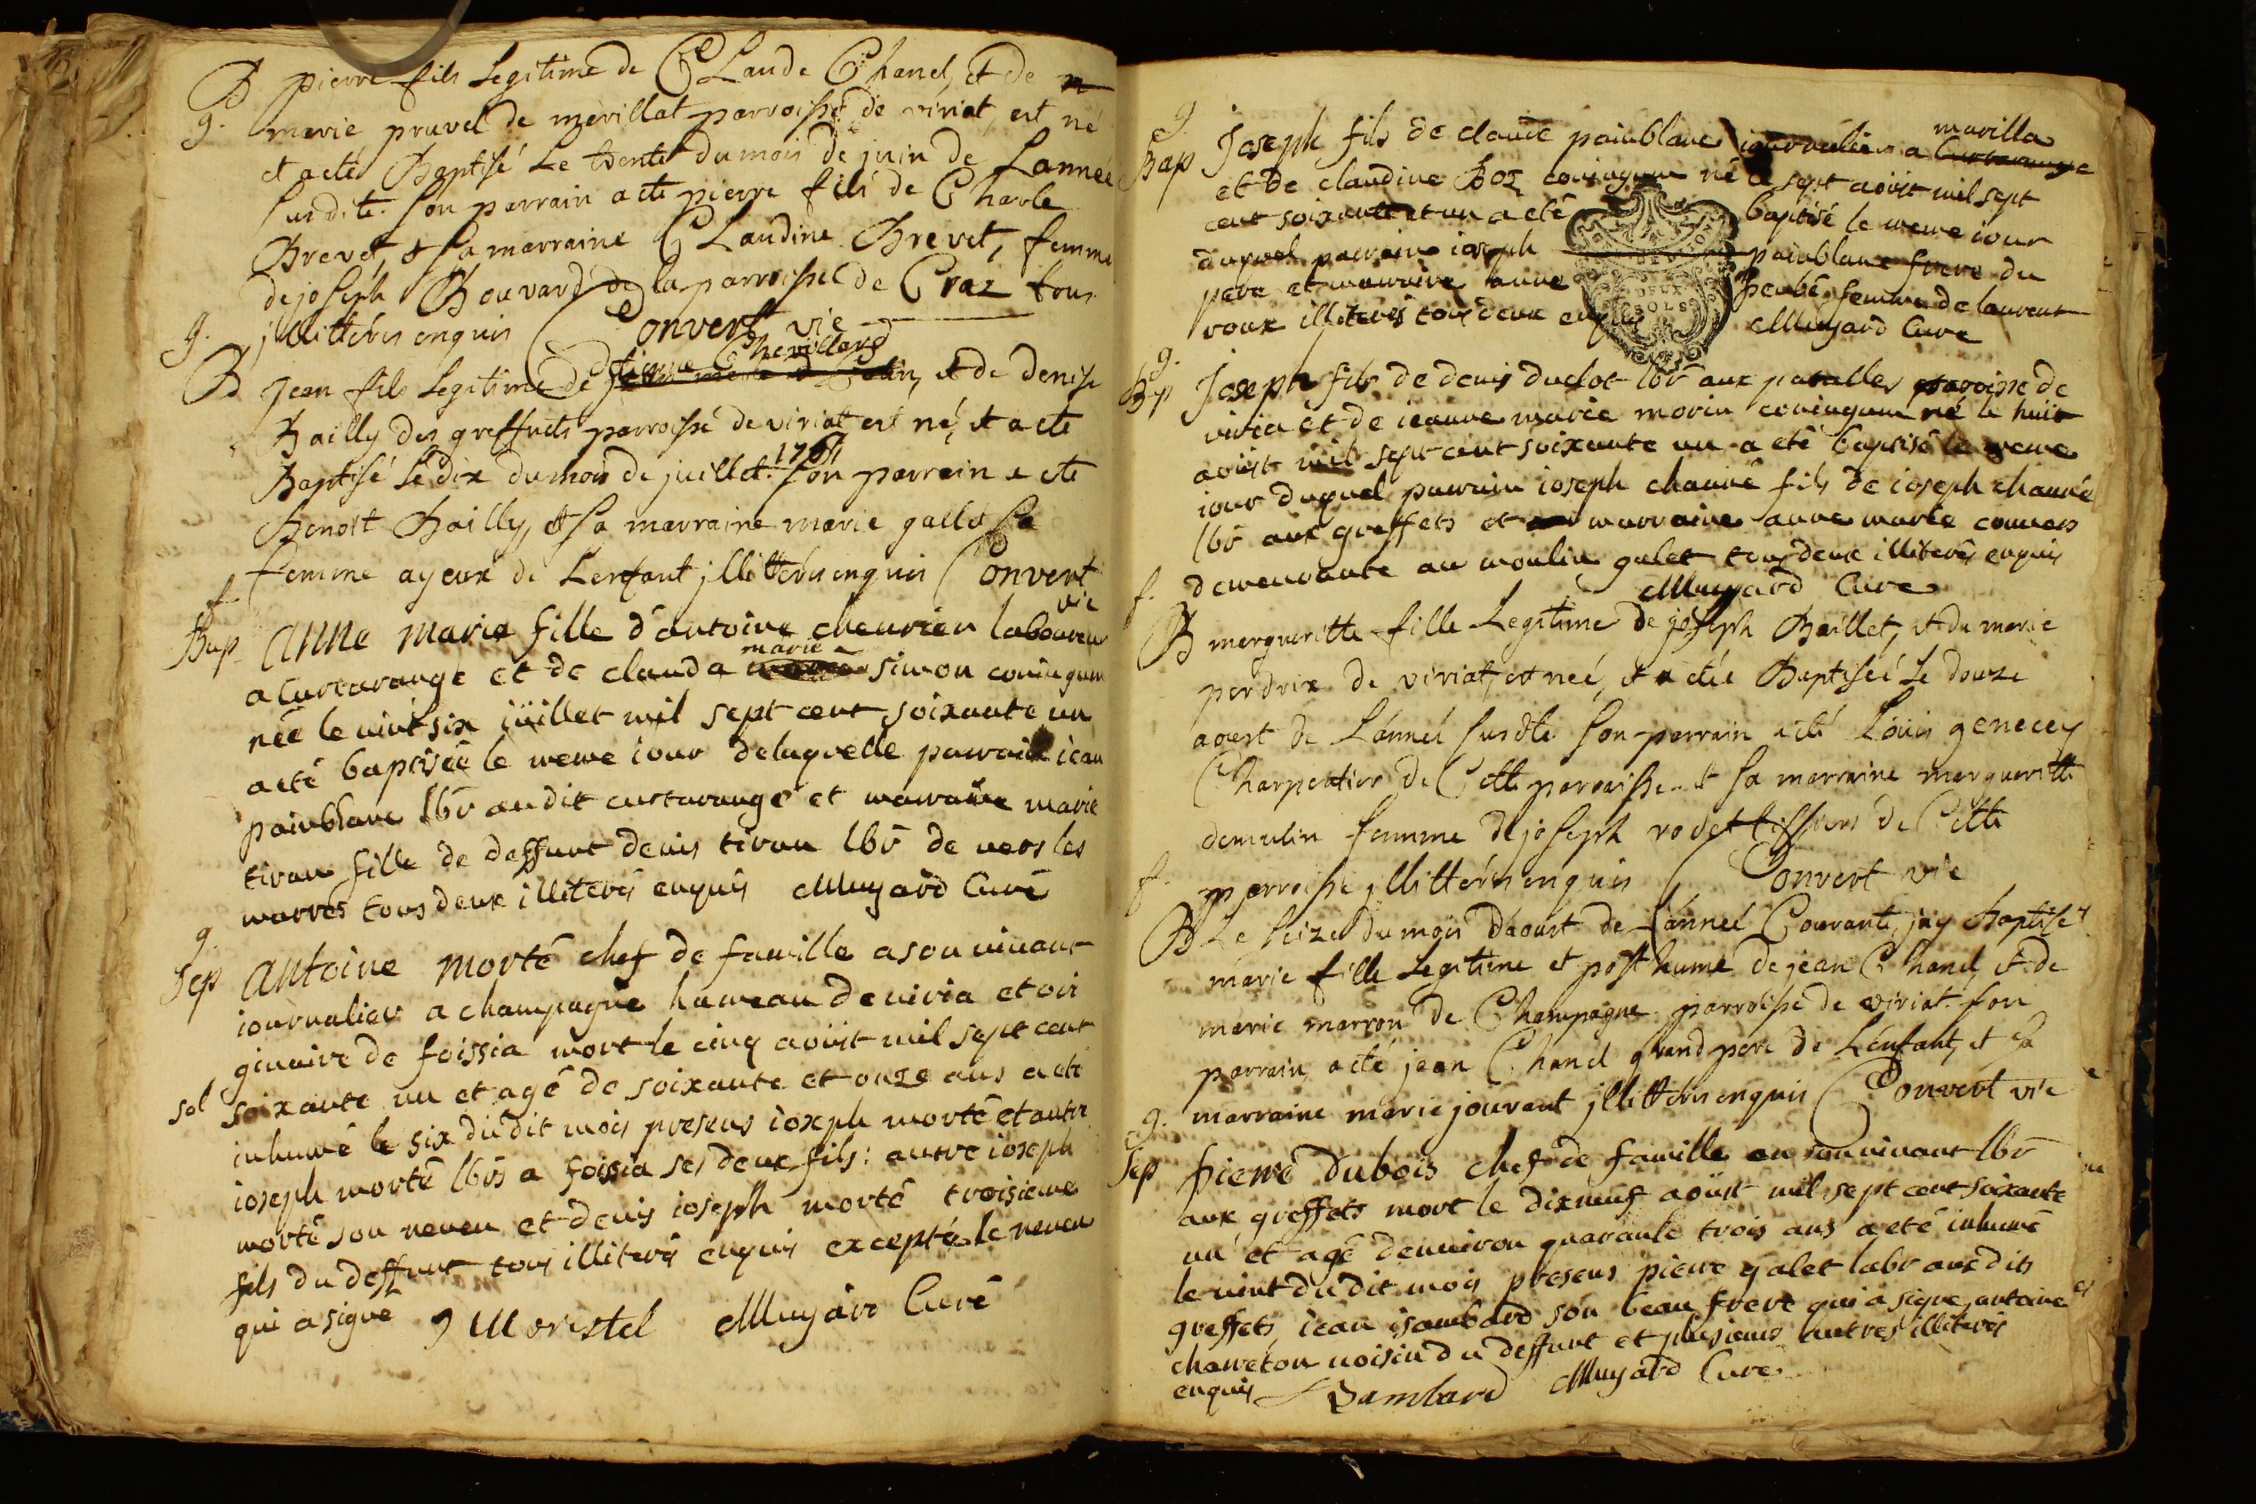 B pierre fils Legitime de CLaude Chanel, et de
g. marie pruvel de mervillat parroisse de viriat, est né
et a eté Baptisé Le trente du mois de juin de Lanneé
Susdite. Son parrain a ete pierre fils de Charle
Brevet, et sa marraine CLaudine Brevet, femme
de joseph Bouvard de la parroisse de Craz tous
jllitterés enquis Convert vie
g.
Etienne Chevillard
B Jean fils Legitime de et de denise
Bailly des greffets parroisse de viriat est né, et a ete
1761
Baptisé Le dix du mois de juillet. Son parrain a ete
Benoit Bailly, et sa marraine marie gallet sa
femme ayeux de Lenfant jllitterés enquis Convert
vie
f.
Bap Anne Marie fille d'antoine cheurier laboureur
marie
a Curtarange et de clauda simon coniugum
née le vint six iüillet mil sept cent soixante un
a eté baptisée le meme iour de laquelle parrain iean
painblanc lbr audit curtarange et marraine marie
tiran fille de deffunt denis tiran lbr de vers les
marres tous deux illiterés enquis Muyard Curé
g.
Sep Antoine Morté chef de famille a son vivant
iournalier a champagne hameau de viria et ori
ginaire de foissia mort le cinq aoüst mil sept cent
sol soixante un et agé de soixante et onze ans a eté
inhumé le six du dit mois presens ioseph morté et autre
ioseph morté lbrs a foissia ses deux fils: autre ioseph
morté son neveu et denis ioseph morté troisieme
fils du deffunt tous illiterés enquis excepté le neveu
qui a signé j Moristel Muyard Curé
g.
marilla
Bap Joseph fils de claude painblanc iournalier a Curtarange
et de claudine Boz coniugum né le sept aoüst mil sept
cent soixante et un a eté baptisé le meme iour
duquel parrain ioseph painblanc frere du
pere et marraine anne femme de laurent
DEUX
SOLS
roux illiterés tous deux enquis Muyard Cure
g.
Bap Joseph fils de denis duclot lbr aux paroisse de
viria et de ieanne marie morin coniugum né le huit
aoüst mil sept cent soixante un a eté baptisé le meme
iour duquel parrain ioseph channé fils de ioseph channé
lbr aux greffets et marraine anne marie convers
demeurante au moulin galet tous deux illiterés enquis
Muyard Cure
f.
B margueritte fille Legitime de joseph Baillet, et du marie
perdrix de viriat, est neé, et a etée Baptiseé Le douze
aoust de Lánneé susdte Son parrain a eté Loüis genecey
Charpentier de Cette parroisse et sa marraine margueritte
demulin femme de joseph rodet tissier de Cette
parroisse jllitterés enquis Convert vie
f.
B Le seize du mois daoust de Lánneé Courante, jay Baptisé
marie fille Legitime et posthume de jean Chanel et de
marie marron de Champagne parroisse de viriat. son
parrain a eté jean Chanel grand pere de Lénfant, et sa
marraine marie jouvent jllitterés enquis Convert vie
g.
Sep Pierre Dubois chef de famille en son vivant lbr
aux greffets mort le dixneuf aoüst mil sept cent soixante
un et agé d'environ quarante trois ans a eté inhumé
le vint du dit mois presens pierre galet labr aux dits
greffets, iean isambard son beau frere qui a signé, antoine
chanreton voisin du deffunt et plusieurs autres illiterés
enquis Isambard Muyard Cure